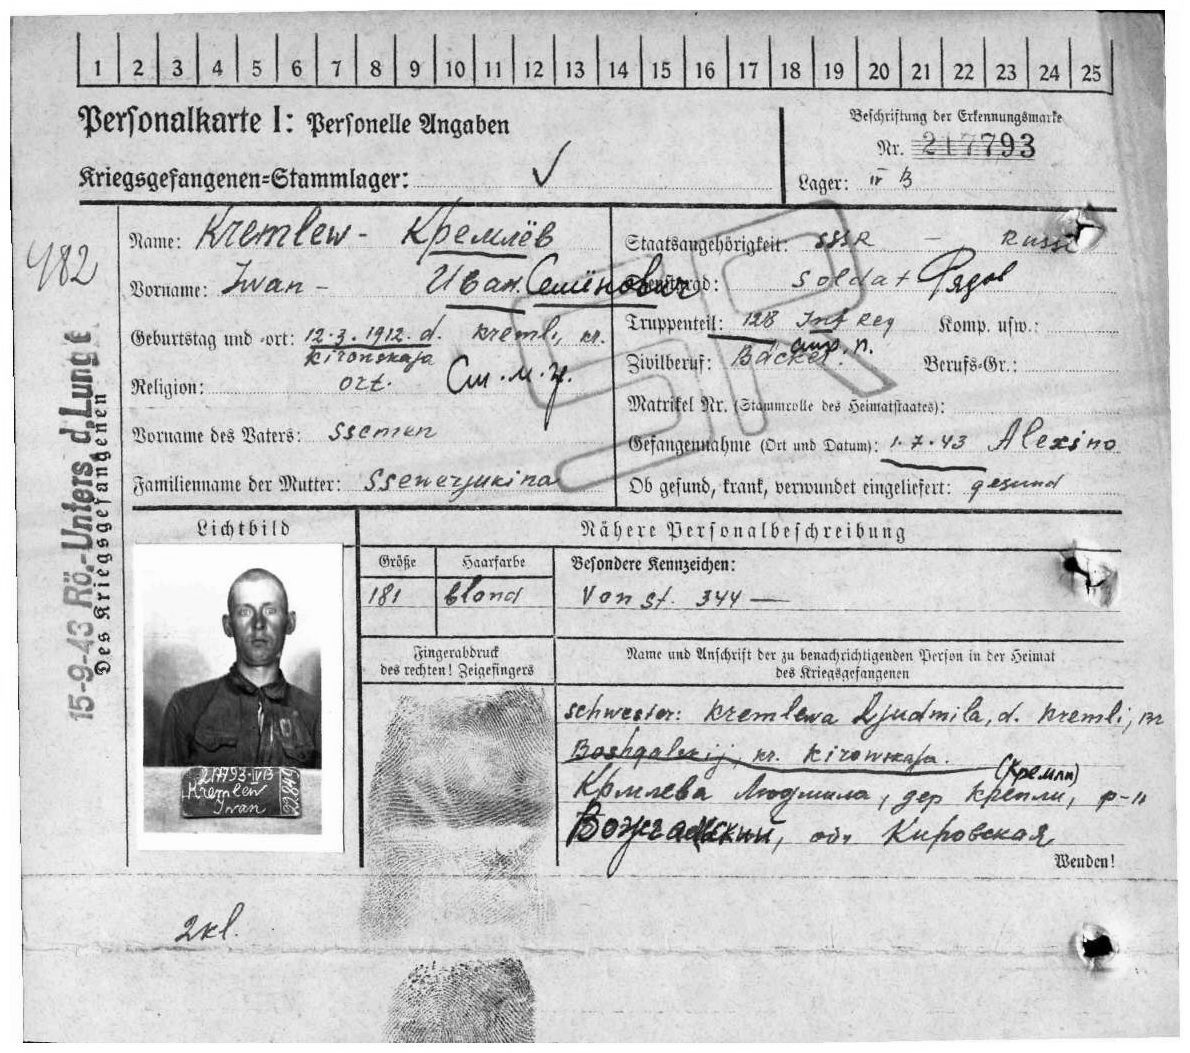 1 2 3 4 5 6 7 8 9 10 11 12 13 14 15 16 17 18 19 20 21 22 23 24 25
Personalkarte I: Personelle Angaben
Kriegsgefangenen=Stammlager:
Beschriftung der Erkennungsmarke
Nr. 217793
Lager: IV B
482
15-9-43 Rö.-Unters. d. Lunge
Des Kriegsgefangenen
SR
Name: Kremlew - Кремлёв
Vorname: Iwan - Иван Семёнович
Geburtstag und -ort: 12.3.1912. d. Kremli, kr.
Kironskaja
Religion: ort. См. м. у.
Vorname des Vaters: Ssemen
Familienname der Mutter: Ssenerjukina
Staatsangehörigkeit: SSSR - Russe
Dienstgrad: Soldat Рядов
Truppenteil: 128 Inf Reg Komp. usw.:
Zivilberuf: Bäcker. Berufs-Gr.:
Matrikel Nr. (Stammrolle des Heimatstaates):
Gefangennahme (Ort und Datum): 1.7.43 Alexino
Ob gesund, krank, verwundet eingeliefert: gesund
Lichtbild
217793-IVB
Kremlew
Iwan
Nähere Personalbeschreibung
Größe Haarfarbe Besondere Kennzeichen:
181 blond Von St. 344 —
Fingerabdruck
des rechten! Zeigefingers
Name und Anschrift der zu benachrichtigenden Person in der Heimat
des Kriegsgefangenen
Schwester: Kremlewa Ljudmila, d. Kremli,
Boshgalskij, kr. Kirowskaja.
(Кремли)
Крмлева Людмила, дер Крепли, р-н
Вожгальский, обл Кировская
Wenden!
2кл.